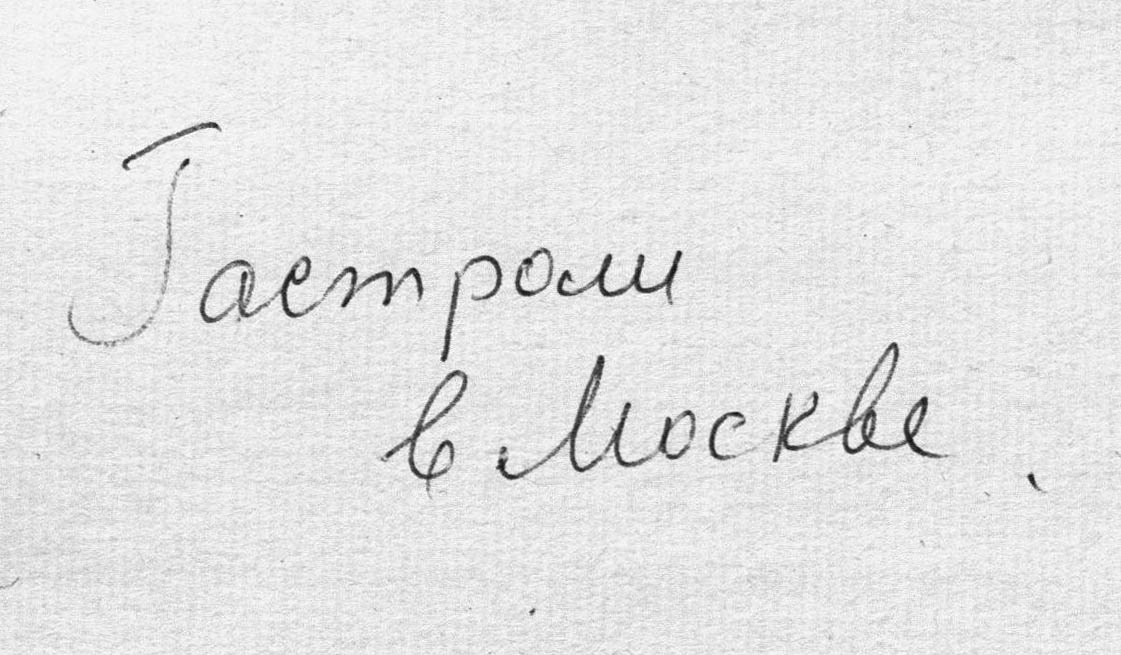 Гастроли
в Москве.